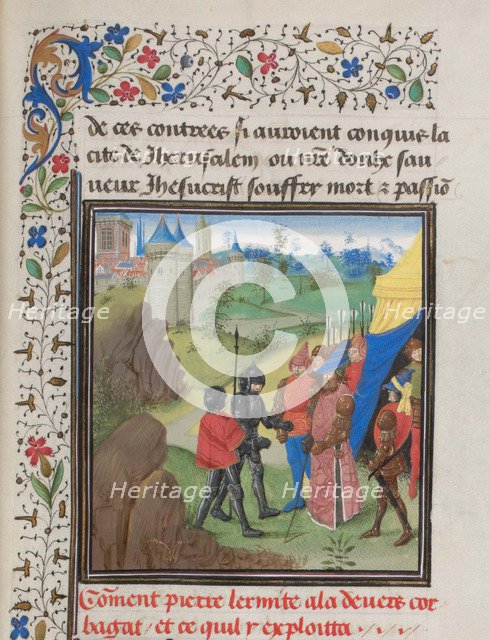 de ces contrees si auroient conquis la
cite de Jherusalem ou nre doulx sau
ueur Jhesucrist souffry mort & passiō
Heritage Heritage Heritage
Heritage Heritage Heritage
Cōment pierre lermite ala deuers cor
bagat et ce quil y exploitta